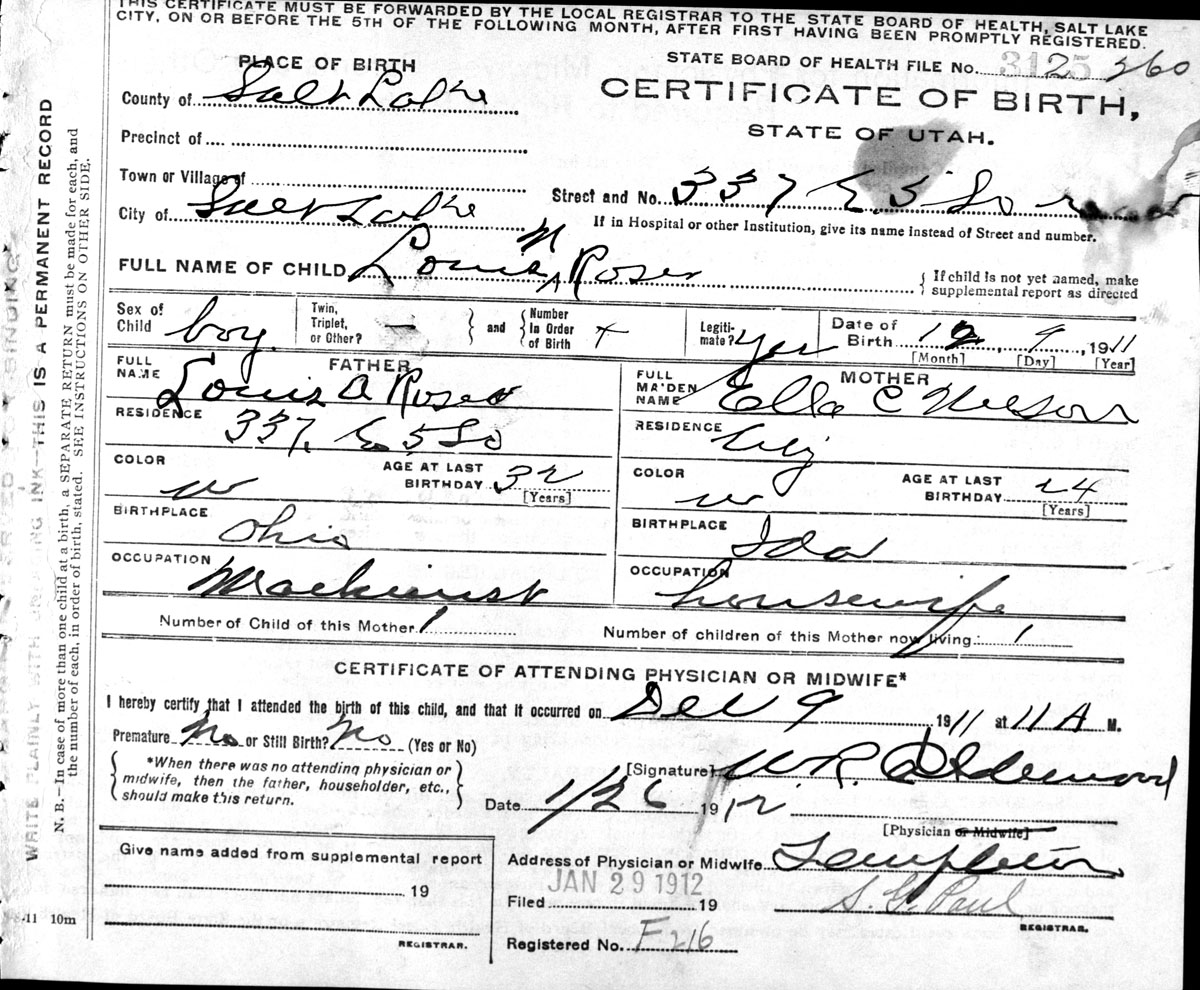 THIS CERTIFICATE MUST BE FORWARDED BY THE LOCAL REGISTRAR TO THE STATE BOARD OF HEALTH, SALT LAKE
CITY, ON OR BEFORE THE 5TH OF THE FOLLOWING MONTH, AFTER FIRST HAVING BEEN PROMPTLY REGISTERED.
PLACE OF BIRTH
STATE BOARD OF HEALTH FILE No. 3125 260
County of Salt Lake
CERTIFICATE OF BIRTH,
STATE OF UTAH.
Precinct of
Town or Village of
Street and No. 337 E. 5 So
City of Salt Lake
If in Hospital or other Institution, give its name instead of Street and number.
FULL NAME OF CHILD Louis A Roser
{If child is not yet named, make
supplemental report as directed
Sex of Child boy
Twin, Triplet, or Other? —
and
Number in Order of Birth
Legiti-mate? yes
Date of Birth 12, 9, 1911
[Month] [Day] [Year]
FATHER
FULL NAME Louis A Roser
RESIDENCE 337 E 5 So
COLOR w
AGE AT LAST BIRTHDAY 32
[Years]
BIRTHPLACE Ohio
OCCUPATION Machinist
MOTHER
FULL MAIDEN NAME Ella C Nelson
RESIDENCE City
COLOR w
AGE AT LAST BIRTHDAY 24
[Years]
BIRTHPLACE Ida
OCCUPATION housewife
Number of Child of this Mother 1
Number of children of this Mother now living: 1
CERTIFICATE OF ATTENDING PHYSICIAN OR MIDWIFE*
I hereby certify that I attended the birth of this child, and that it occurred on Dec 9 1911 at 11 A M.
Premature No or Still Birth? No (Yes or No)
{*When there was no attending physician or
midwife, then the father, householder, etc.,
should make this return.}
[Signature] W.R. Calderwood
Date 1/26 1912
[Physician or Midwife]
Give name added from supplemental report
19
REGISTRAR.
Address of Physician or Midwife Templeton
JAN 29 1912
Filed 19
S. G. Paul
REGISTRAR.
Registered No. F216
-11 10m
WRITE PLAINLY WITH UNFADING INK—THIS IS A PERMANENT RECORD
N. B.—In case of more than one child at a birth, a SEPARATE RETURN must be made for each, and
the number of each, in order of birth, stated. SEE INSTRUCTIONS ON OTHER SIDE.